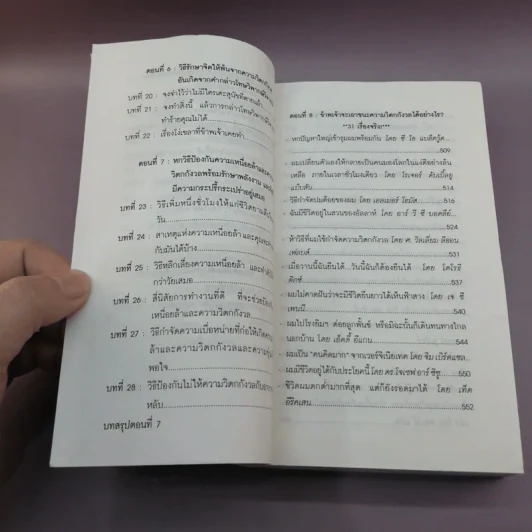 ตอนที่ 6 : วิธีรักษาจิตให้พ้นจากความวิตกกังวล
อันเกิดจากคำกล่าวโทษวิพากษ์วิจารณ์
บทที่ 20 : จงจำไว้ว่าไม่มีใครเตะสุนัขที่ตายแล้ว
บทที่ 21 : จงทำสิ่งนี้ แล้วการกล่าวโทษวิพากษ์วิจารณ์
ทำร้ายคุณไม่ได้
บทที่ 22 : เรื่องโง่เขลาที่ข้าพเจ้าเคยทำ
ตอนที่ 7 : หกวิธีป้องกันความเหนื่อยล้าและความ
วิตกกังวลพร้อมรักษาพลังงาน และ
มีความกระปรี้กระเปร่าอยู่เสมอ
บทที่ 23 : วิธีเพิ่มหนึ่งชั่วโมงให้แก่ชีวิตยามตื่น
วัน
บทที่ 24 : สาเหตุแห่งความเหนื่อยล้า และคุณจะ
กับมันได้บ้าง
บทที่ 25 : วิธีหลีกเลี่ยงความเหนื่อยล้า และ
กว่าวัยเสมอ
บทที่ 26 : สี่นิสัยการทำงานที่ดี ที่จะช่วยป้องกัน
เหนื่อยล้าและความวิตกกังวล
บทที่ 27 : วิธีกำจัดความเบื่อหน่ายที่ก่อให้เกิด
ล้าและความวิตกกังวลและความ
พอใจ
บทที่ 28 : วิธีป้องกันไม่ให้ความวิตกกังวล
หลับ
บทสรุปตอนที่ 7
ตอนที่ 8 : ข้าพเจ้าจะเอาชนะความวิตกกังวลได้อย่างไร?
"31 เรื่องจริง"
- หกปัญหาใหญ่เข้ารุมผมพร้อมกัน โดย ซี. ไอ. แบล็ควู้ด
509
- ผมเปลี่ยนตัวเองให้กลายเป็นคนมองโลกในแง่ดีอย่างล้น
เหลือ ภายในเวลาชั่วโมงเดียว โดย โรเจอร์ ดับเบิ้ลยู
แบ๊บสัน 514
- วิธีกำจัดปมด้อยของผม โดย เอลเมอร์ โธมัส 517
- ฉันมีชีวิตอยู่ในสวนของอัลลาห์ โดย อาร์ วี ซี บอดลีย์
524
- ห้าวิธีที่ผมใช้กำจัดความวิตกกังวล โดย ศ. วิลเลียม
- เมื่อวานนี้ฉันยืนได้...วันนี้ฉันก็ต้องยืนได้ โดย โดโรธี
ดิกซ์
- ผมไม่คาดฝันว่าจะมีชีวิตยืนยาวได้เห็นฟ้าสาง โดย เจ. ซี
เพนนี
- ผมไปโรงยิมฯ ต่อยลูกพั้นช์ หรือมิฉะนั้นก็เดินทนทางไกล
นอกบ้าน โดย เอ็ดดี้ อีแกน
- ผมเป็น "คนคิดมาก" จากเวอร์จิเนียเทค โดย จิม เบิร์ดแซล
- ผมมีชีวิตอยู่ได้กับประโยคนี้ โดย ดร.โจเซฟ อาร์ ซิซู
550
- ชีวิตผมตกต่ำมากที่สุด แต่ก็ยังรอดมาได้ โดย เท็ด
อีริคเสน 552